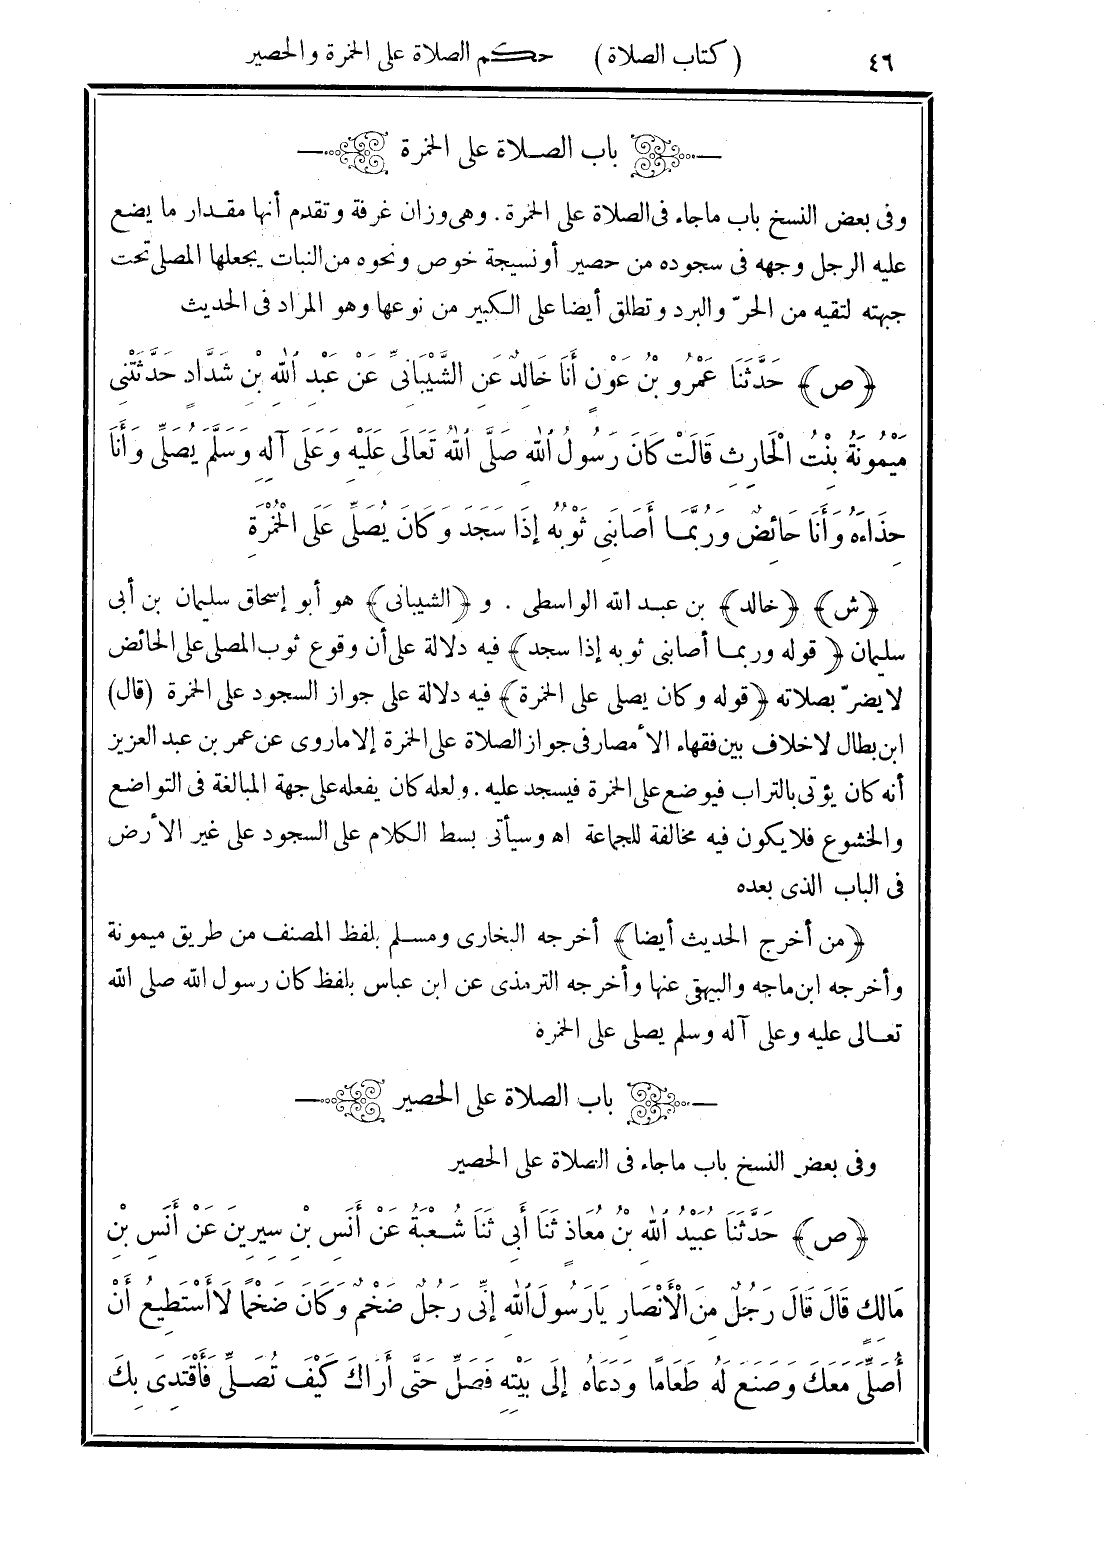 ٤٦ (كتاب الصلاة) حكم الصلاة على الخمرة والحصير
باب الصلاة على الخمرة
وفى بعض النسخ باب ماجاء فى الصلاة على الخمرة . وهى وزان غرفة وتقدم أنها مقدار ما يضع
عليه الرجل وجهه فى سجوده من حصير أو نسيجة خوص ونحوه من النبات يجعلها المصلى تحت
جبهته لتقيه من الحرّ والبرد وتطلق أيضا على الكبير من نوعها وهو المراد فى الحديث
﴿ص﴾ حَدَّثَنَا عَمْرُو بْنُ عَوْنٍ أَنَا خَالِدٌ عَنِ الشَّيْبَانِىِّ عَنْ عَبْدِ ٱللهِ بْنِ شَدَّادٍ حَدَّثَتْنِى
مَيْمُونَةُ بِنْتُ الْحَارِثِ قَالَتْ كَانَ رَسُولُ ٱللهِ صَلَّى ٱللهُ تَعَالَى عَلَيْهِ وَعَلَى آلِهِ وَسَلَّمَ يُصَلِّى وَأَنَا
حِذَاءَهُ وَأَنَا حَائِضٌ وَرُبَّمَا أَصَابَنِى ثَوْبُهُ إِذَا سَجَدَ وَكَانَ يُصَلِّى عَلَى الْخُمْرَةِ
﴿ش﴾ ﴿خالد﴾ بن عبد الله الواسطى . و ﴿الشيبانى﴾ هو أبو إسحاق سليمان بن أبى
سليمان ﴿قوله وربما أصابنى ثوبه إذا سجد﴾ فيه دلالة على أن وقوع ثوب المصلى على الحائض
لايضرّ بصلاته ﴿قوله وكان يصلى على الخمرة﴾ فيه دلالة على جواز السجود على الخمرة (قال)
ابن بطال لاخلاف بين فقهاء الأمصار فى جواز الصلاة على الخمرة إلا ماروى عن عمر بن عبد العزيز
أنه كان يؤتى بالتراب فيوضع على الخمرة فيسجد عليه . ولعله كان يفعله على جهة المبالغة فى التواضع
والخشوع فلا يكون فيه مخالفة للجماعة اه وسيأتى بسط الكلام على السجود على غير الأرض
فى الباب الذى بعده
﴿من أخرج الحديث أيضا﴾ أخرجه البخارى ومسلم بلفظ المصنف من طريق ميمونة
وأخرجه ابن ماجه والبيهقى عنها وأخرجه الترمذى عن ابن عباس بلفظ كان رسول الله صلى الله
تعالى عليه وعلى آله وسلم يصلى على الخمرة
باب الصلاة على الحصير
وفى بعض النسخ باب ماجاء فى الصلاة على الحصير
﴿ص﴾ حَدَّثَنَا عُبَيْدُ ٱللهِ بْنُ مُعَاذٍ ثَنَا أَبِى ثَنَا شُعْبَةُ عَنْ أَنَسِ بْنِ سِيرِينَ عَنْ أَنَسِ بْنِ
مَالِكٍ قَالَ قَالَ رَجُلٌ مِنَ الْأَنْصَارِ يَارَسُولَ ٱللهِ إِنِّى رَجُلٌ ضَخْمٌ وَكَانَ ضَخْمًا لَا أَسْتَطِيعُ أَنْ
أُصَلِّىَ مَعَكَ وَصَنَعَ لَهُ طَعَامًا وَدَعَاهُ إِلَى بَيْتِهِ فَصَلِّ حَتَّى أَرَاكَ كَيْفَ تُصَلِّى فَأَقْتَدِىَ بِكَ